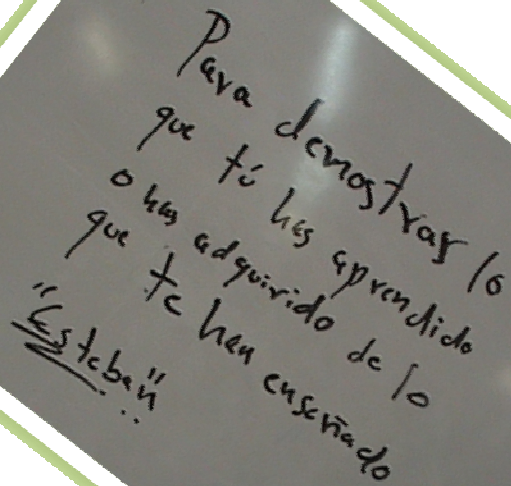 Para demostrar lo
que tú has aprendido
o has adquirido de lo
que te han enseñado
"Esteban"